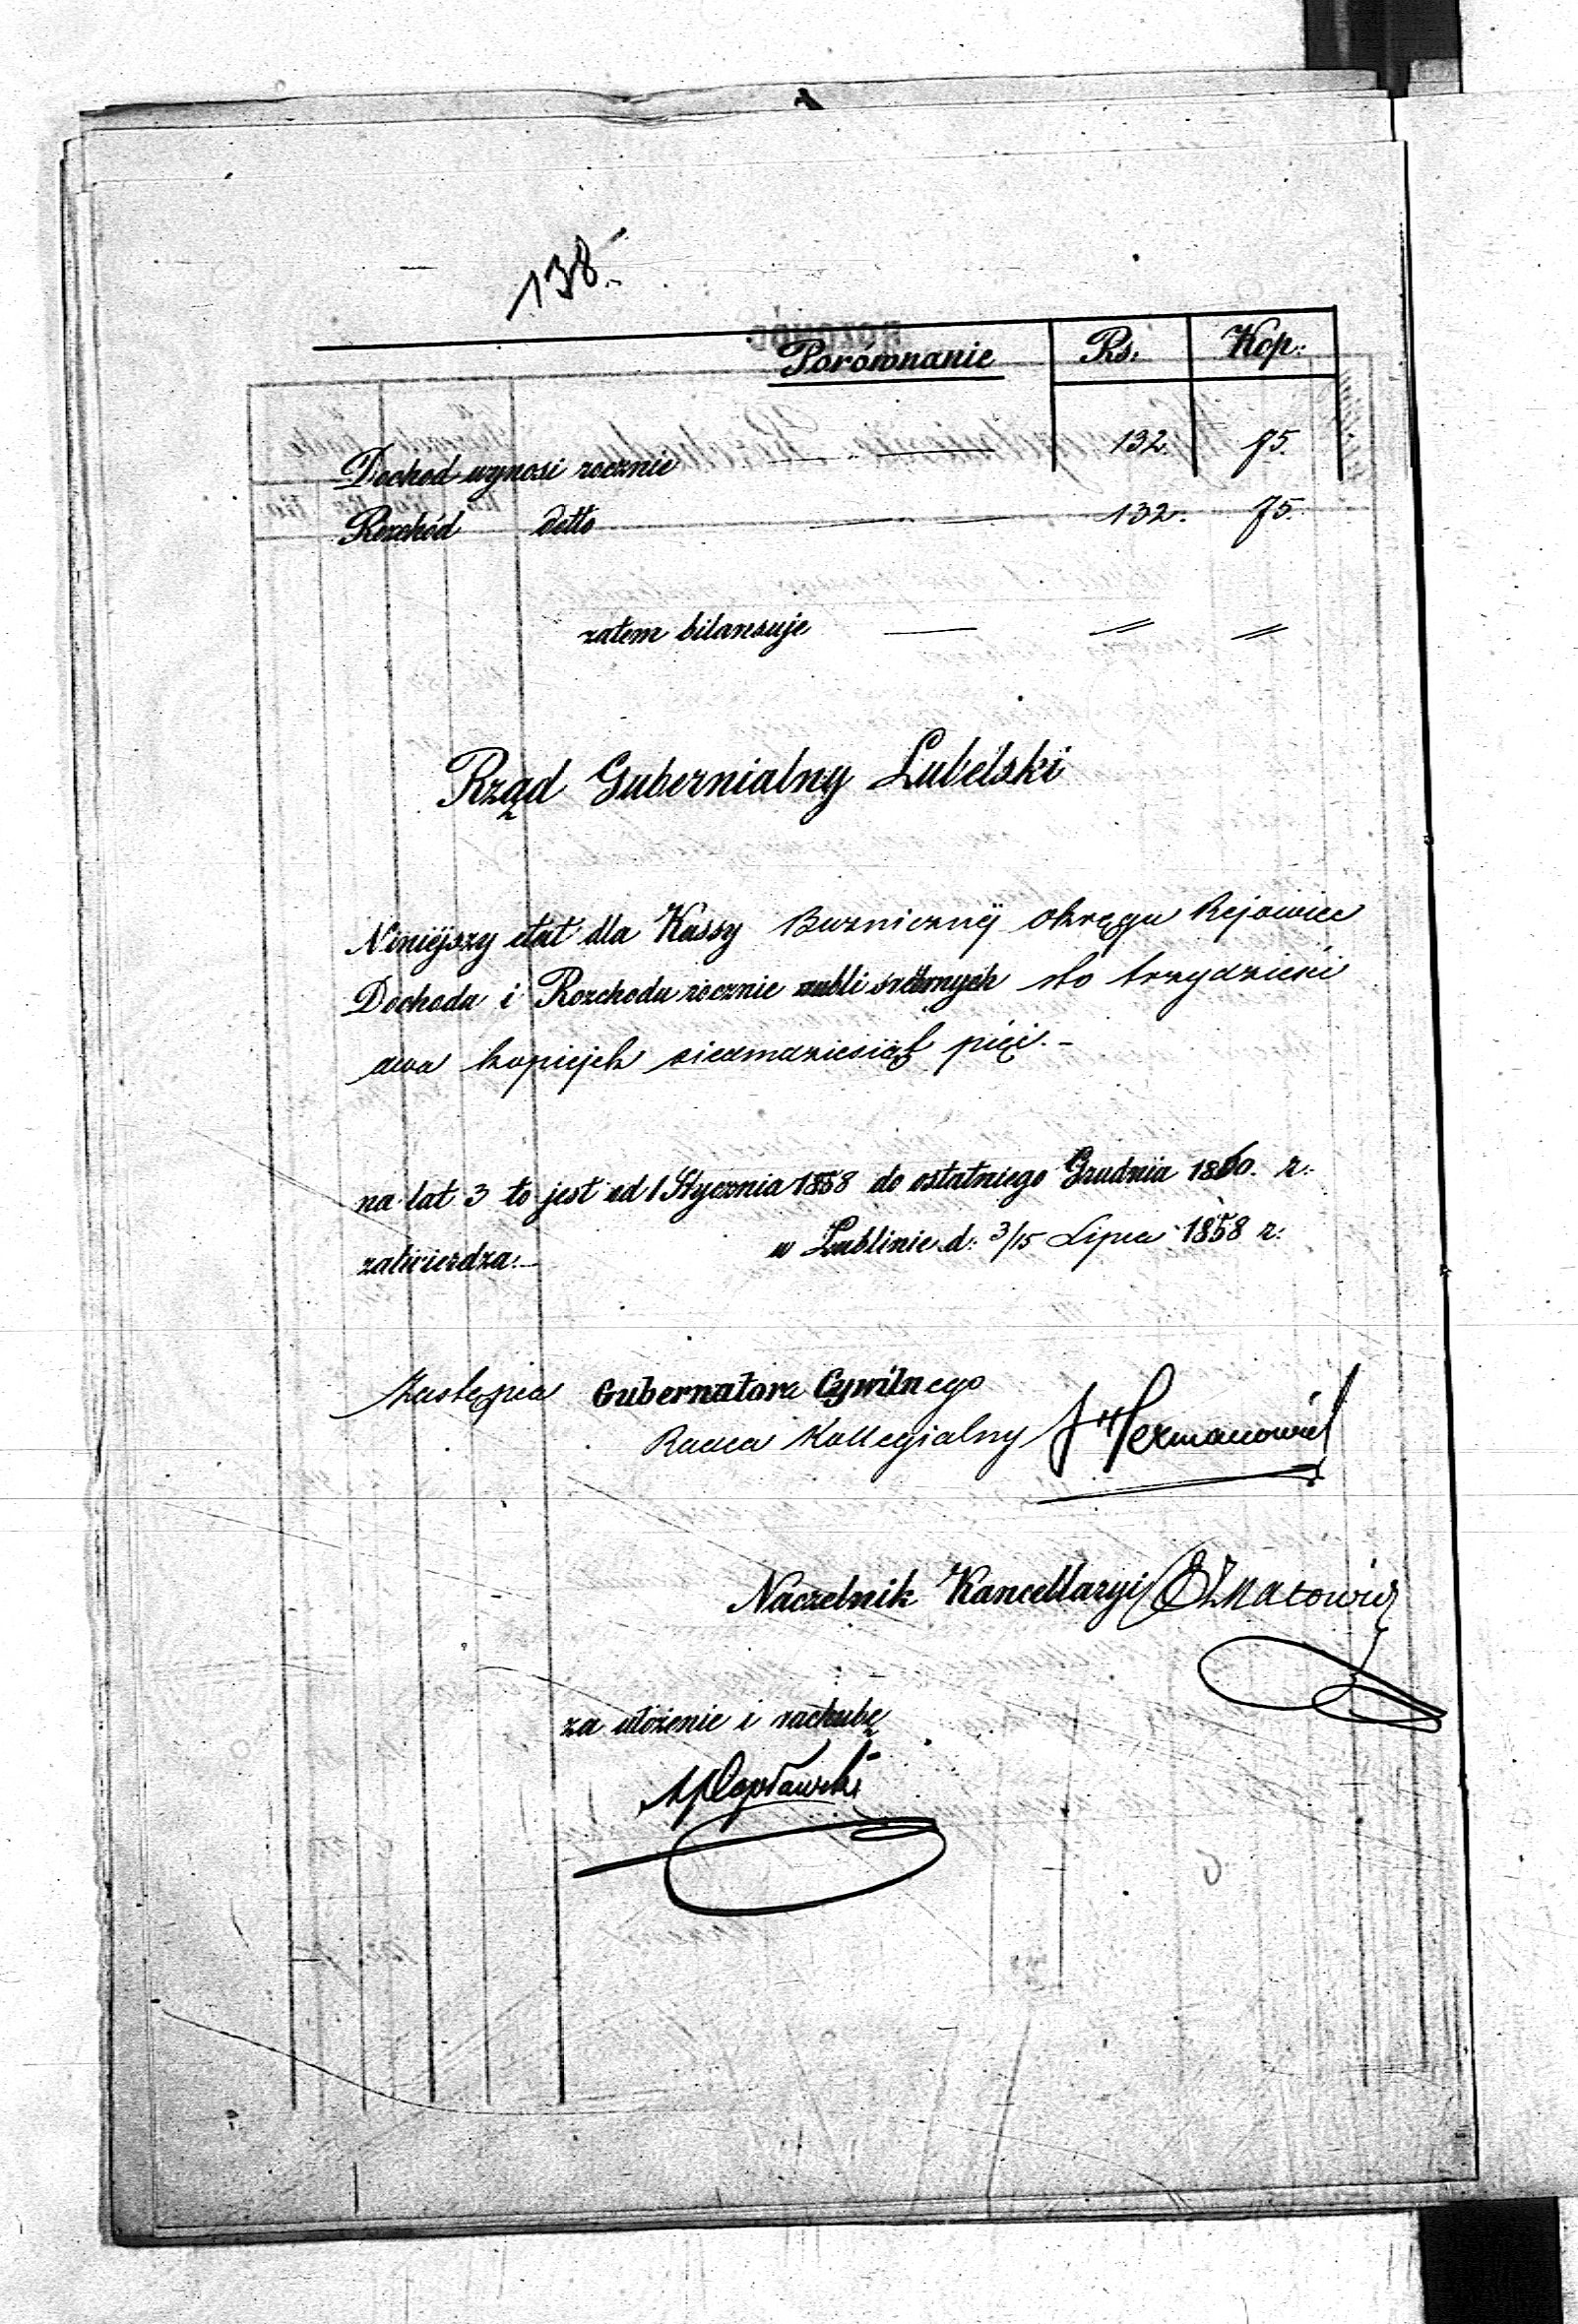 138.
Porównanie Rs. Kop:
Dochod wynosi rocznie 132. 75.
Rozchód detto 132. 75.
zatem bilansuje
Rząd Gubernialny Lubelski
Niniejszy etat dla Kassy Buzniczny okręgu Rejowiec
Dochodu i Rozchodu rocznie rubli srebrnych sto trzydzieści
dwa kopiejek siedmdziesiąt pięć.
na lat 3 to jest od 1 Stycznia 1858 do ostatniego Grudnia 1860. r.
zatwierdza. w Lublinie d. 3/15 Lipca 1858 r.
Zastępca Gubernatora Cywilnego
Radca Kollegialny Hermanowicz
Naczelnik Kancellaryi
za ułożenie i rachubę